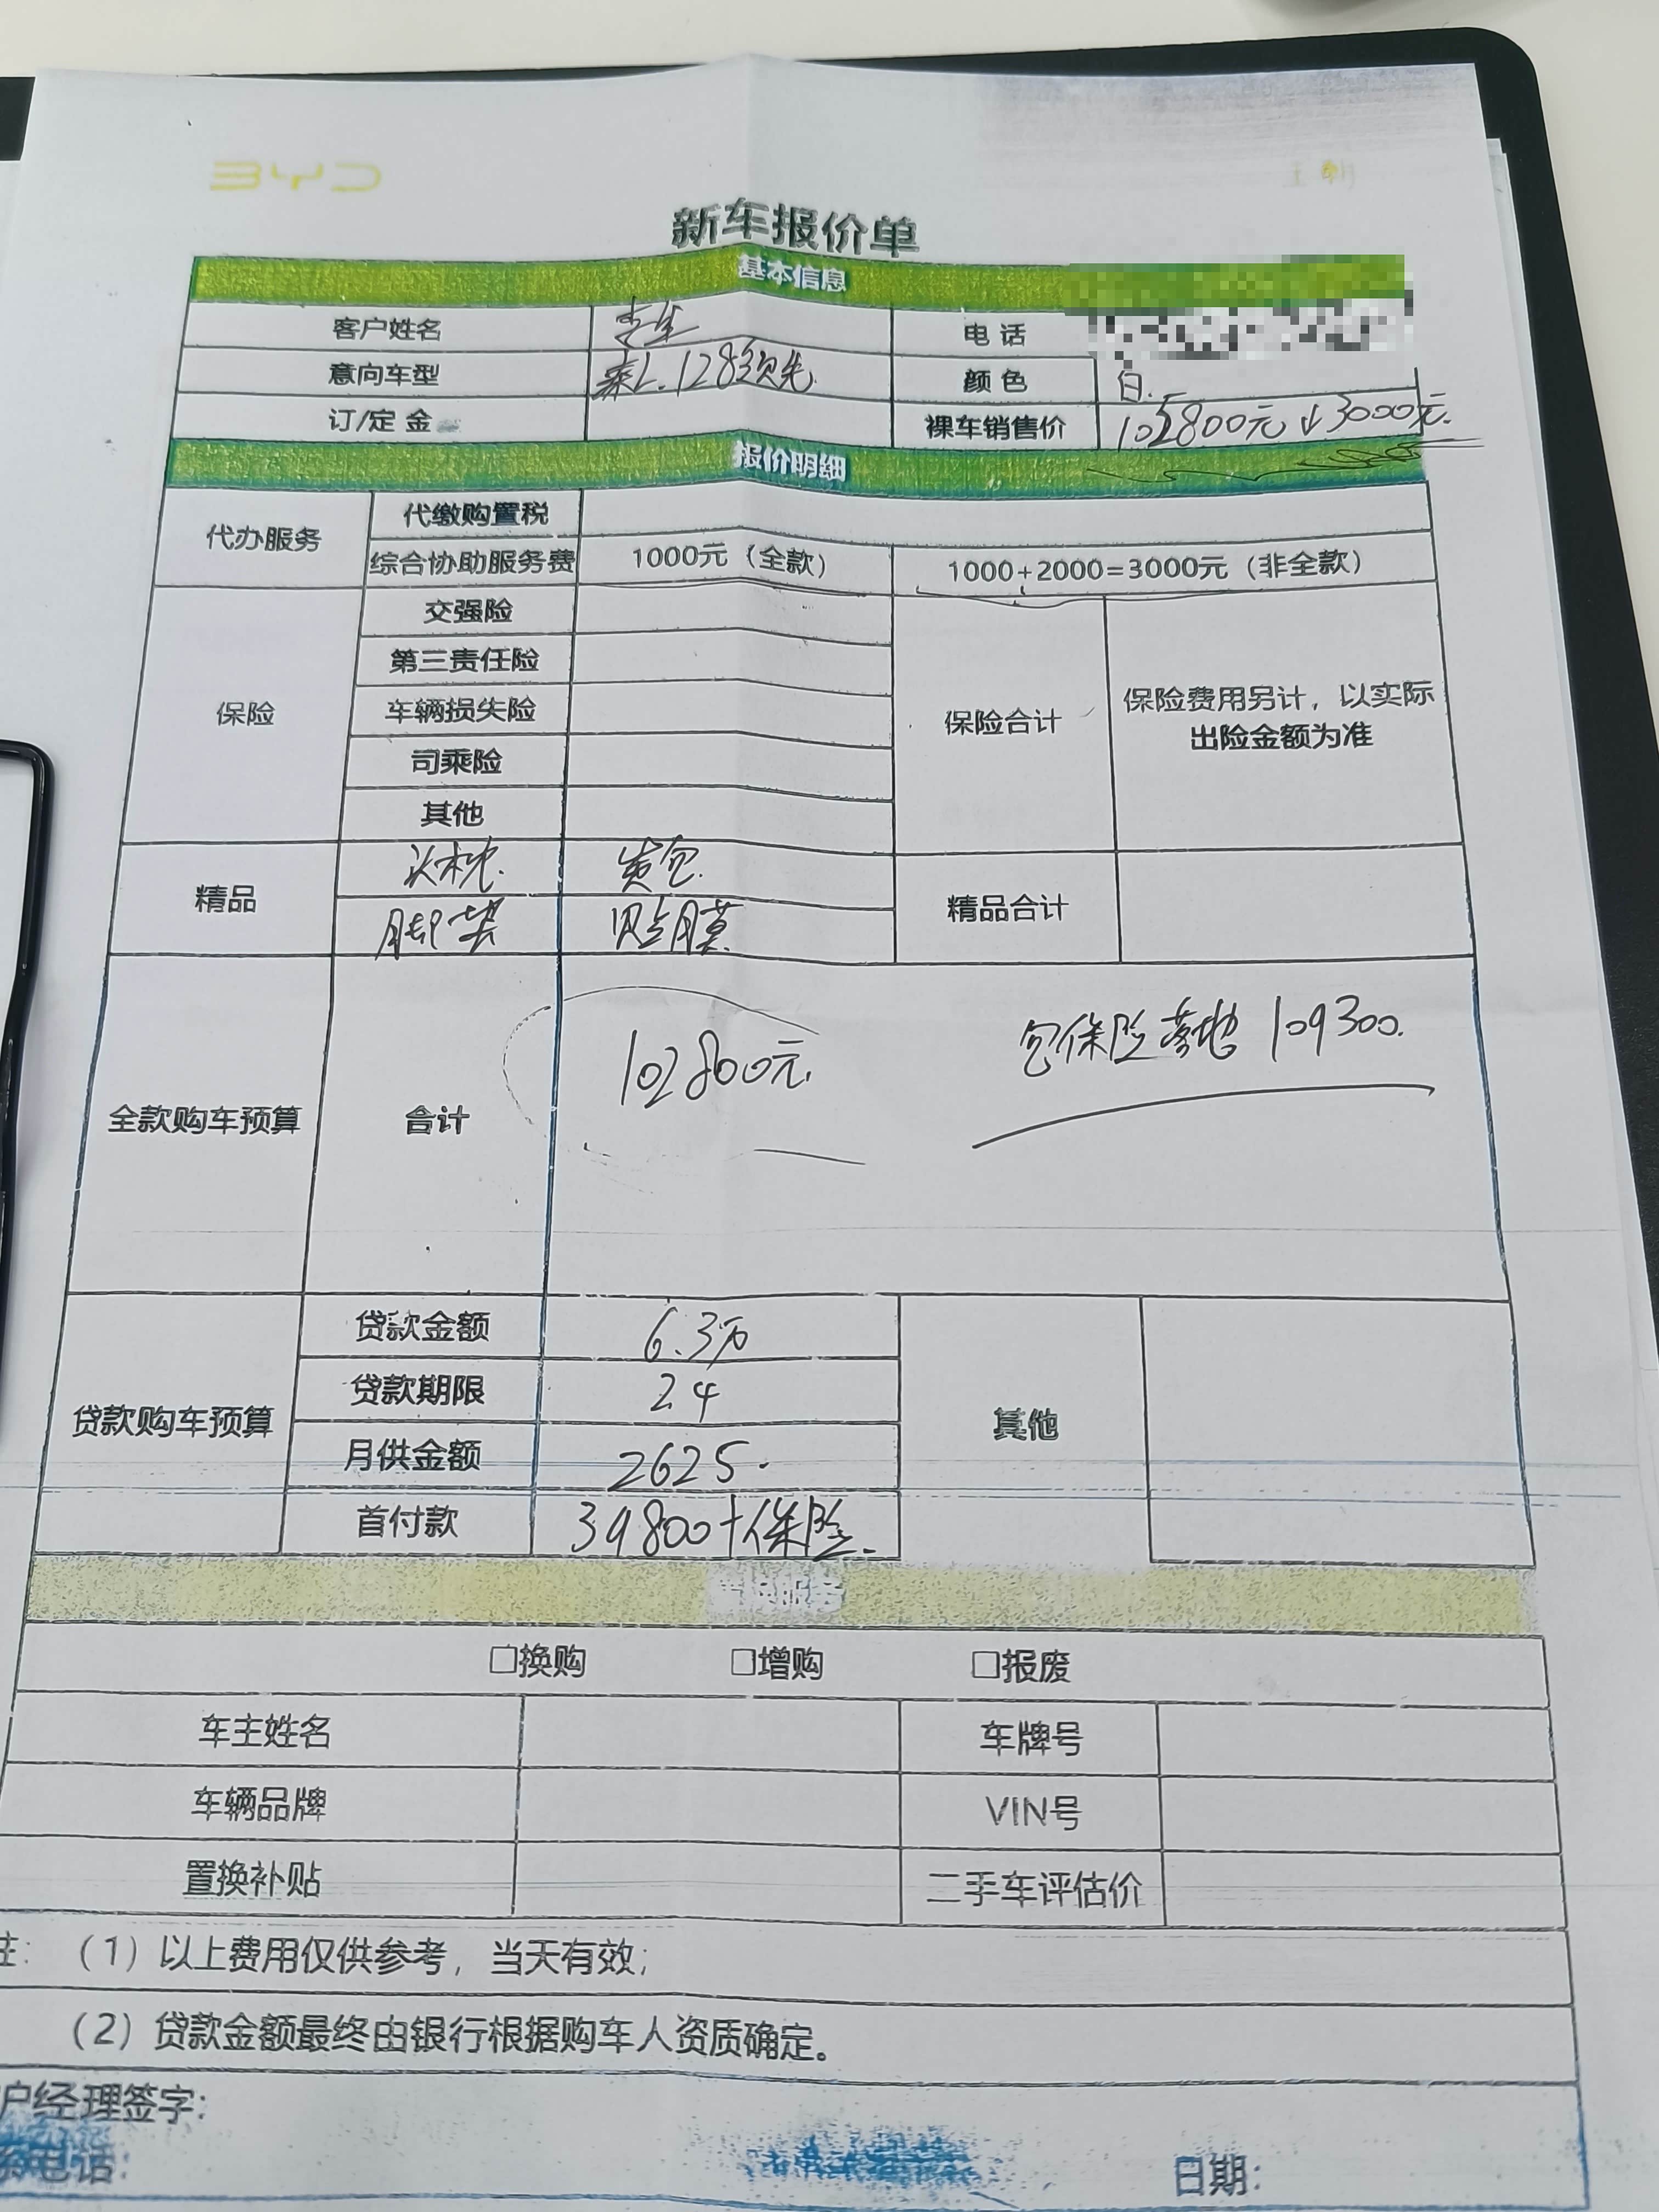 BYD 王朝
新车报价单
基本信息
客户姓名 李生 电话
意向车型 秦L.128领先. 颜色 白.
订/定金 裸车销售价 105800元↓3000元.
报价明细
代办服务 代缴购置税
综合协助服务费 1000元（全款） 1000+2000=3000元（非全款）
保险 交强险
第三责任险
车辆损失险
司乘险
其他
保险合计 保险费用另计，以实际
出险金额为准
精品 头枕.
脚垫 贴膜.
精品合计
全款购车预算 合计 102800元. 包保险落地109300.
贷款购车预算 贷款金额 6.3万
贷款期限 24
月供金额 2625.
首付款 39800+保险.
其他
置换服务
□换购 □增购 □报废
车主姓名 车牌号
车辆品牌 VIN号
置换补贴 二手车评估价
注：（1）以上费用仅供参考，当天有效；
（2）贷款金额最终由银行根据购车人资质确定。
户经理签字：
电话： 日期：